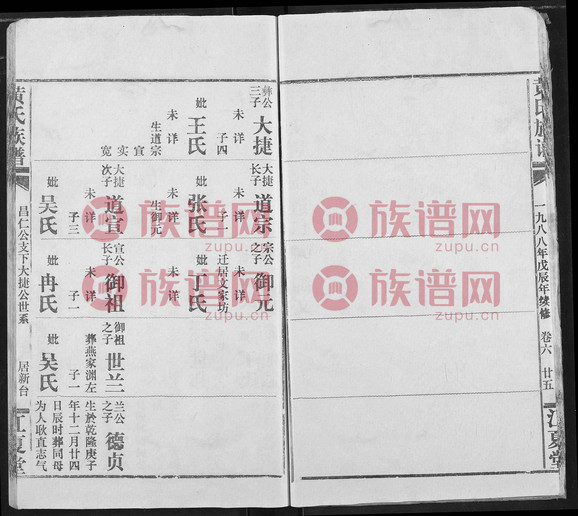 黄氏族谱
一九八八年戊辰年续修
卷六
廿五
江夏堂
彝公三子
大捷
未详
子四
妣
王氏
未详
生道宗
宣
实
宽
大捷长子
道宗
未详
子一
妣
张氏
未详
生御元
大捷次子
道宣
未详
子三
妣
吴氏
宗公之子
御元
迁居文家坊
妣
丁氏
宣公长子
御祖
未详
子一
妣
冉氏
御祖之子
世兰
葬燕家渊左
子一
妣
吴氏
兰公之子
德贞
生於乾隆庚子
年十二月廿四
日辰时葬同母
为人耿直志气
黄氏族谱
昌仁公支下大捷公世系
居新台
江夏堂
族谱网
zupu.cn
族谱网
zupu.cn
族谱网
zupu.cn
族谱网
zupu.cn
族谱网
zupu.cn
族谱网
zupu.cn